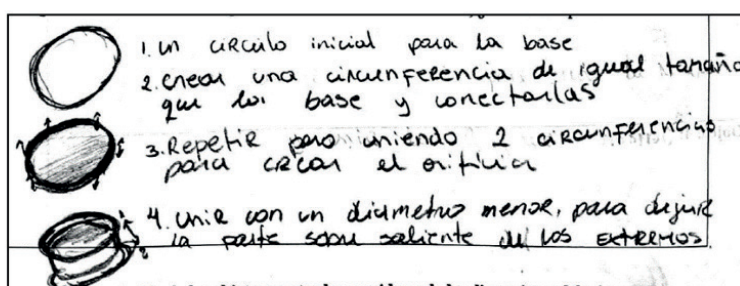 1. un círculo inicial para la base
2. crear una circunferencia de igual tamaño
que la base y conectarlas
3. Repetir pero uniendo 2 circunferencias
para crear el orificio
4. Unir con un diámetro menor, para definir
la parte sobre saliente de los extremos